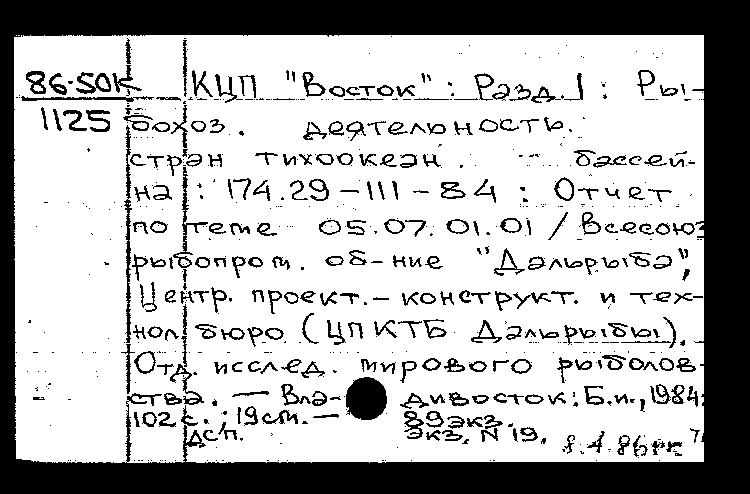 86-50К КЦП "Восток" : Разд. 1 : Ры-
1125 бохоз. деятельность.
стран тихоокеан. бассей-
на : 174.29-111-84 : Отчет
по теме 05.07.01.01 / Всесоюз
рыбопром. об-ние "Дальрыба",
Центр. проект.-конструкт. и тех-
нол. бюро (ЦПКТБ Дальрыбы).
Отд. исслед. мирового рыболов-
ства. — Владивосток: Б.и., 1984.
102 с. ; 19 см. — 89 экз.
Дсп. Экз. N 19. 8.4.86